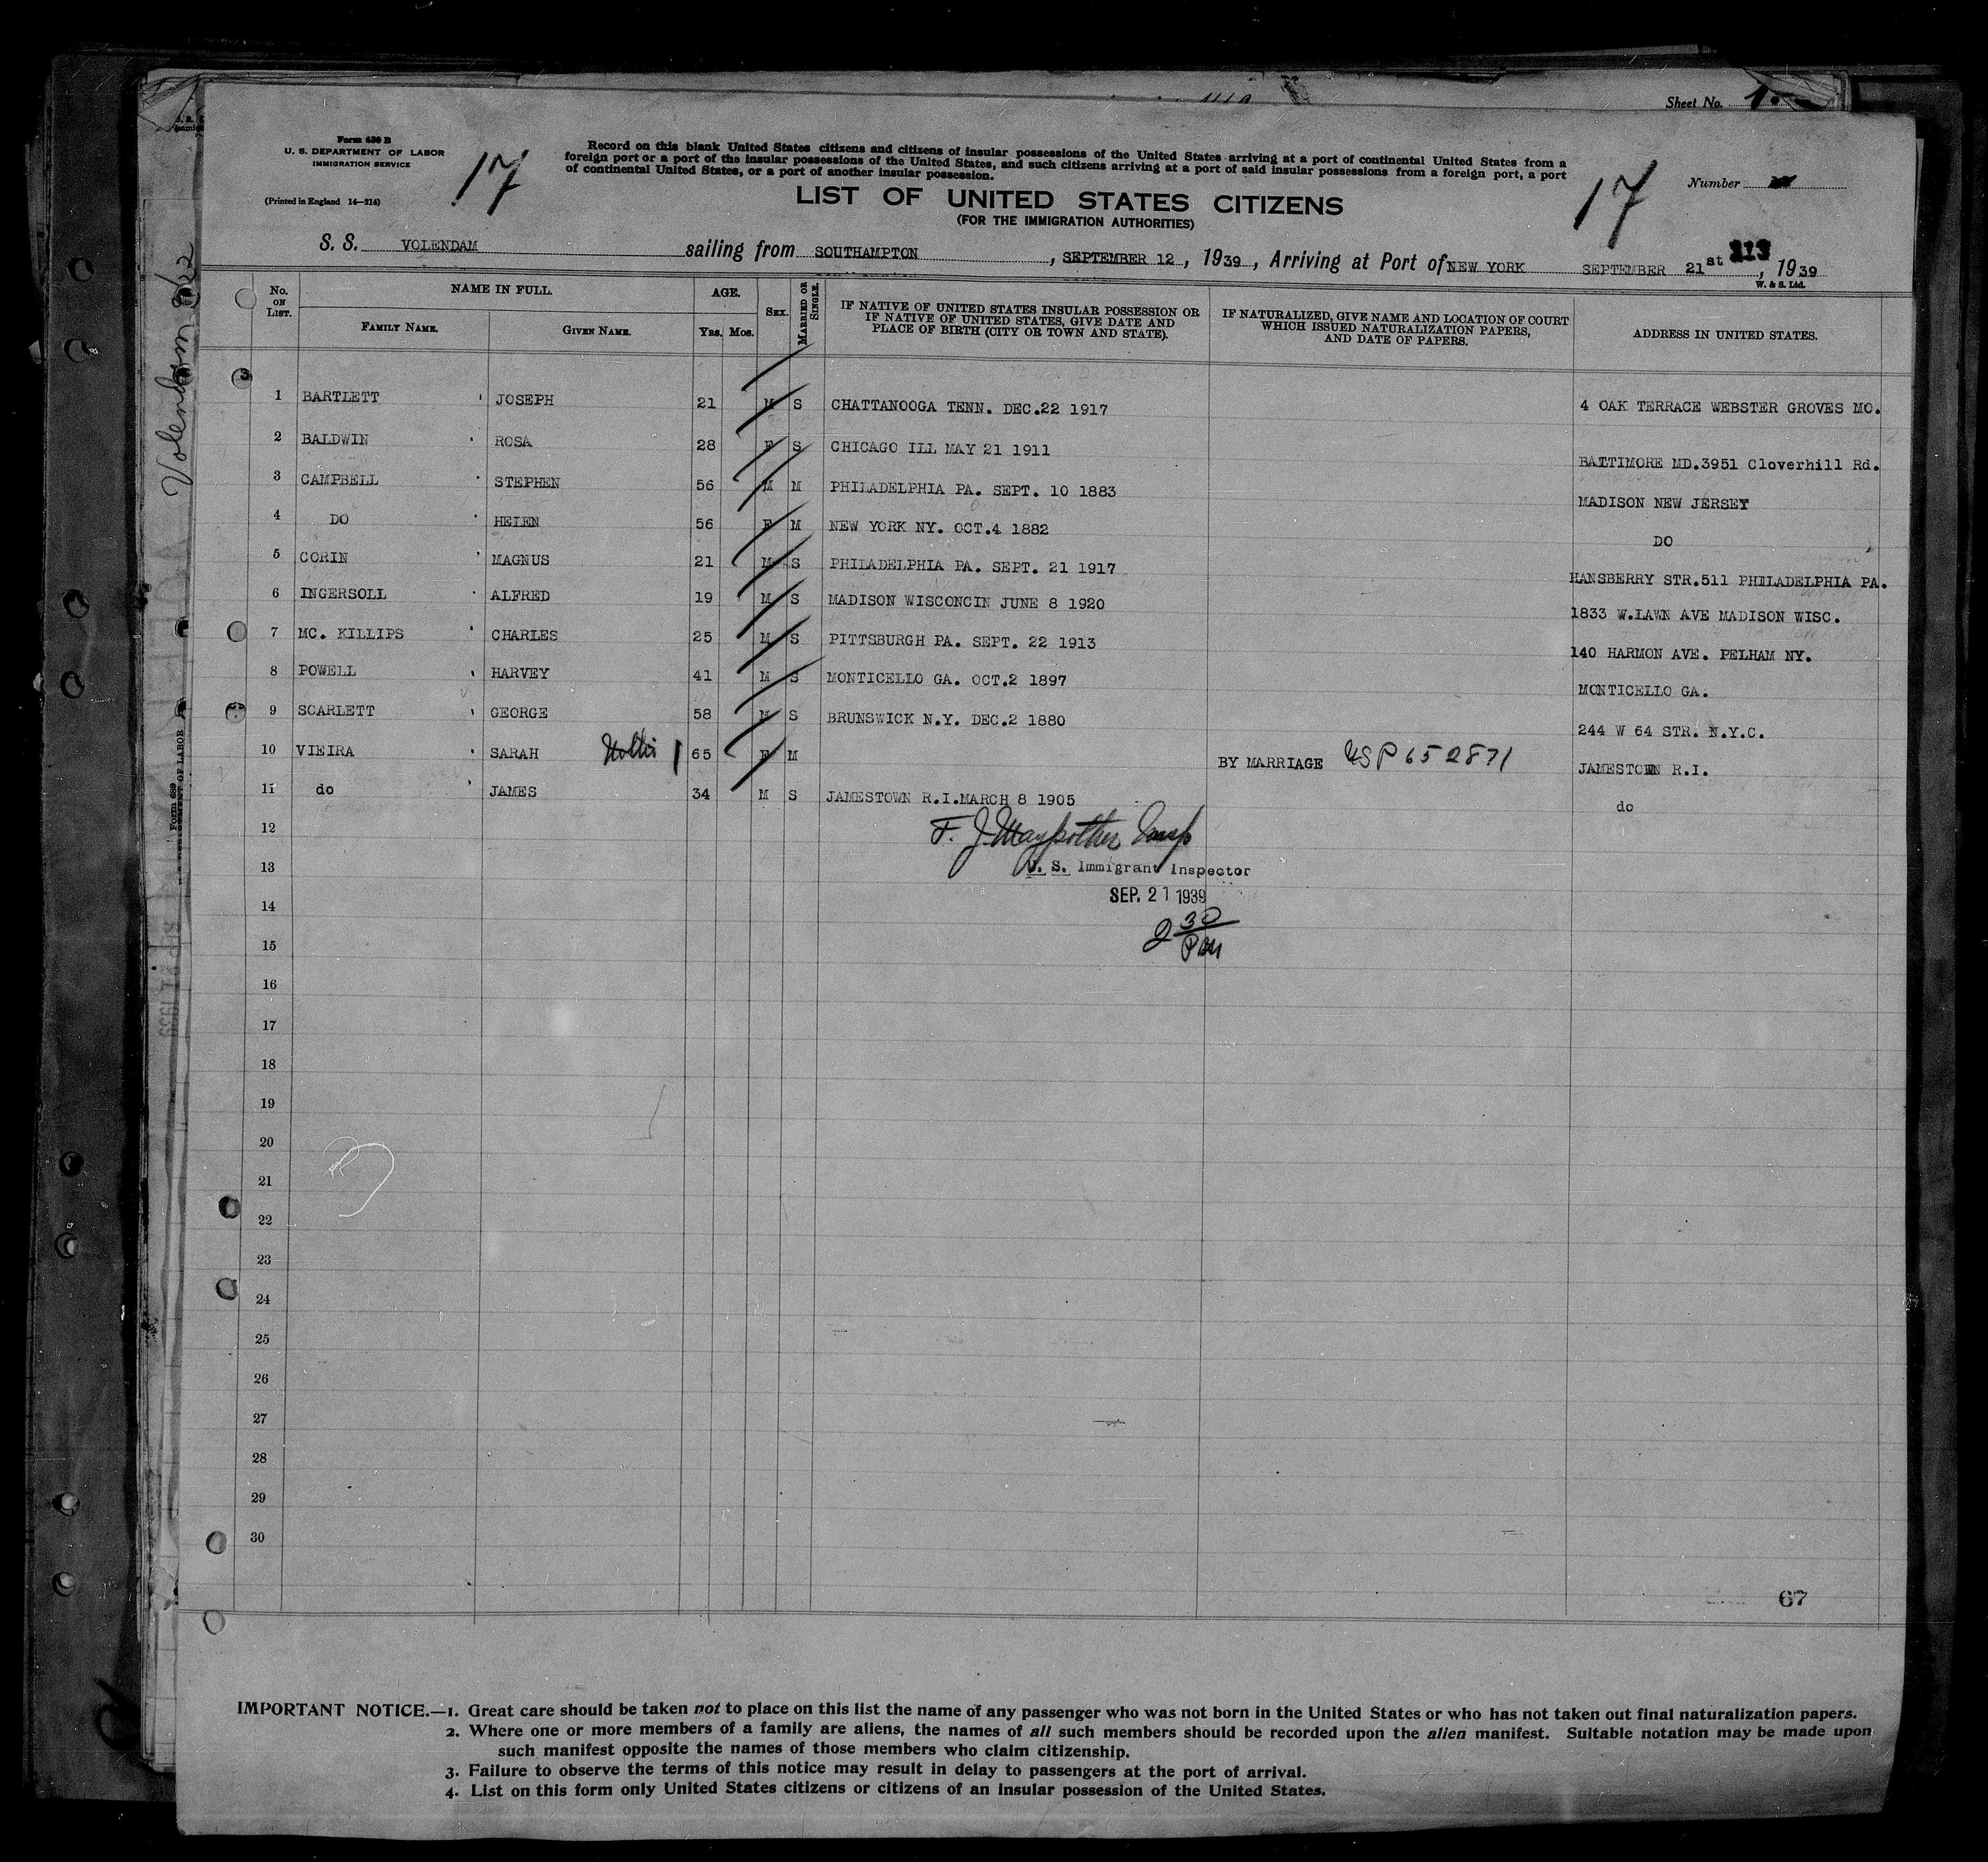 Sheet No. 1.
Form 630 B
U. S. DEPARTMENT OF LABOR
IMMIGRATION SERVICE
(Printed in England 14—214)
17
Record on this blank United States citizens and citizens of insular possessions of the United States arriving at a port of continental United States from a
foreign port or a port of the insular possessions of the United States, and such citizens arriving at a port of said insular possessions from a foreign port, a port
of continental United States, or a port of another insular possession.
17
Number
LIST OF UNITED STATES CITIZENS
(FOR THE IMMIGRATION AUTHORITIES)
213
S. S. VOLENDAM sailing from SOUTHAMPTON, SEPTEMBER 12, 1939, Arriving at Port of NEW YORK SEPTEMBER 21st, 1939
W. & S. Ltd.
No. ON LIST. NAME IN FULL. FAMILY NAME. GIVEN NAME. AGE. Yrs. Mos. SEX. MARRIED OR SINGLE. IF NATIVE OF UNITED STATES INSULAR POSSESSION OR IF NATIVE OF UNITED STATES, GIVE DATE AND PLACE OF BIRTH (CITY OR TOWN AND STATE). IF NATURALIZED, GIVE NAME AND LOCATION OF COURT WHICH ISSUED NATURALIZATION PAPERS, AND DATE OF PAPERS. ADDRESS IN UNITED STATES.
1 BARTLETT JOSEPH 21 M S CHATTANOOGA TENN. DEC.22 1917 4 OAK TERRACE WEBSTER GROVES MO.
2 BALDWIN ROSA 28 F S CHICAGO ILL MAY 21 1911 BALTIMORE MD.3951 Cloverhill Rd.
3 CAMPBELL STEPHEN 56 M M PHILADELPHIA PA. SEPT. 10 1883 MADISON NEW JERSEY
4 DO HELEN 56 F M NEW YORK NY. OCT.4 1882 DO
5 CORIN MAGNUS 21 M S PHILADELPHIA PA. SEPT. 21 1917 HANSBERRY STR.511 PHILADELPHIA PA.
6 INGERSOLL ALFRED 19 M S MADISON WISCONCIN JUNE 8 1920 1833 W.LAWN AVE MADISON WISC.
7 MC. KILLIPS CHARLES 25 M S PITTSBURGH PA. SEPT. 22 1913 140 HARMON AVE. PELHAM NY.
8 POWELL HARVEY 41 M S MONTICELLO GA. OCT.2 1897 MONTICELLO GA.
9 SCARLETT GEORGE 58 M S BRUNSWICK N.Y. DEC.2 1880 244 W 64 STR. N.Y.C.
10 VIEIRA SARAH 65 F M BY MARRIAGE USP 652871 JAMESTOWN R.I.
11 do JAMES 34 M S JAMESTOWN R.I.MARCH 8 1905 do
12
F. J. Maypother Insp
13
U. S. Immigrant Inspector
SEP. 21 1939
14
2 30 PM
15
16
17
18
19
20
21
22
23
24
25
26
27
28
29
30
67
IMPORTANT NOTICE.—1. Great care should be taken not to place on this list the name of any passenger who was not born in the United States or who has not taken out final naturalization papers.
2. Where one or more members of a family are aliens, the names of all such members should be recorded upon the alien manifest. Suitable notation may be made upon
such manifest opposite the names of those members who claim citizenship.
3. Failure to observe the terms of this notice may result in delay to passengers at the port of arrival.
4. List on this form only United States citizens or citizens of an insular possession of the United States.
Volendam 9/22